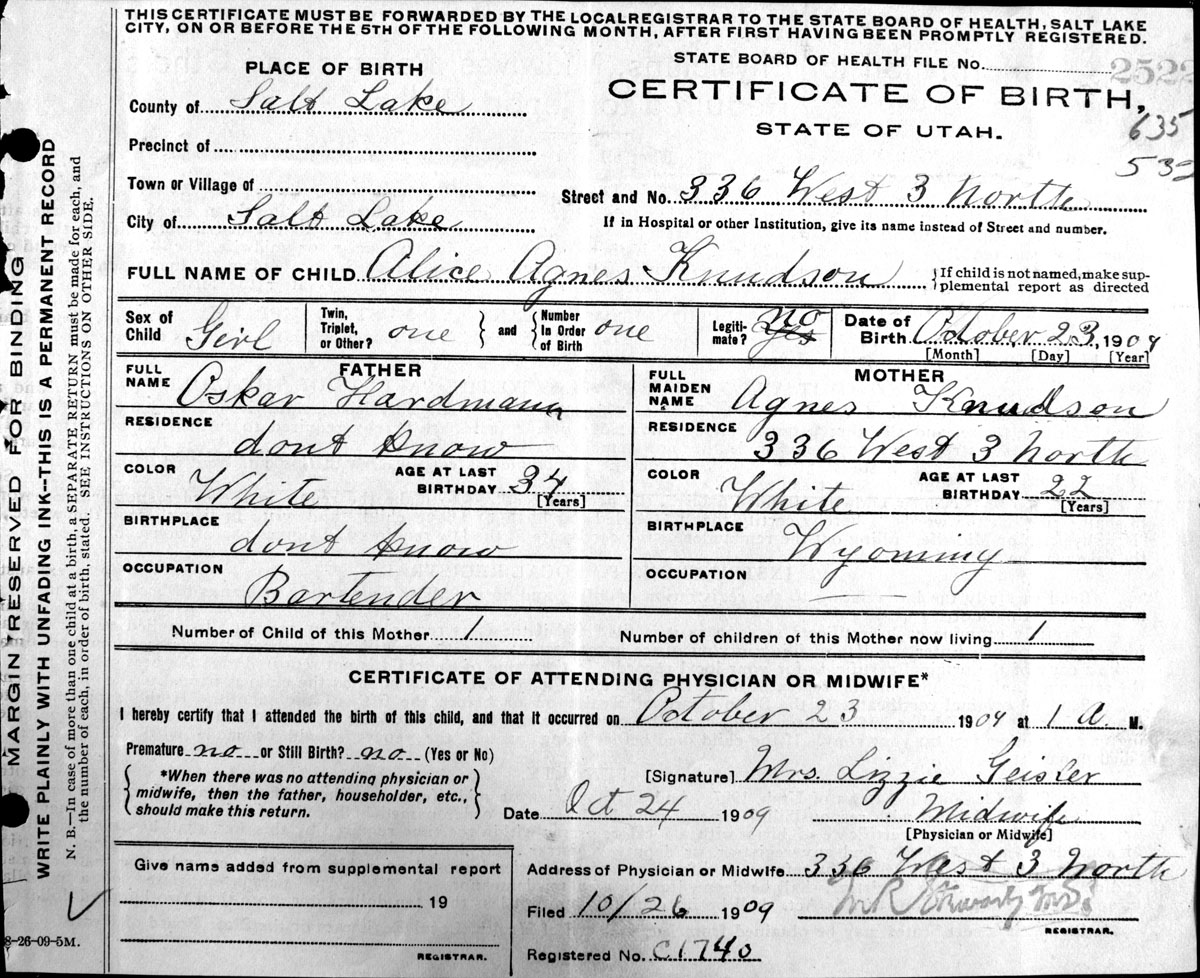 THIS CERTIFICATE MUST BE FORWARDED BY THE LOCAL REGISTRAR TO THE STATE BOARD OF HEALTH, SALT LAKE
CITY, ON OR BEFORE THE 5TH OF THE FOLLOWING MONTH, AFTER FIRST HAVING BEEN PROMPTLY REGISTERED.
STATE BOARD OF HEALTH FILE No. 2522
PLACE OF BIRTH
CERTIFICATE OF BIRTH,
STATE OF UTAH.
635
532
County of Salt Lake
Precinct of
Town or Village of
City of Salt Lake
Street and No. 336 West 3 North
If in Hospital or other Institution, give its name instead of Street and number.
FULL NAME OF CHILD Alice Agnes Knudson
If child is not named, make sup-
plemental report as directed
Sex of Child Girl
Twin, Triplet, or Other? one
and Number In Order of Birth one
Legiti-mate? no Yes
Date of Birth October 23, 1909
[Month] [Day] [Year]
FATHER
FULL NAME Oskar Hardmann
RESIDENCE dont know
COLOR White AGE AT LAST BIRTHDAY 34 [Years]
BIRTHPLACE dont know
OCCUPATION Bartender
MOTHER
FULL MAIDEN NAME Agnes Knudson
RESIDENCE 336 West 3 North
COLOR White AGE AT LAST BIRTHDAY 22 [Years]
BIRTHPLACE Wyoming
OCCUPATION
Number of Child of this Mother 1 Number of children of this Mother now living 1
CERTIFICATE OF ATTENDING PHYSICIAN OR MIDWIFE*
I hereby certify that I attended the birth of this child, and that it occurred on October 23 1909 at 1 A M.
Premature no or Still Birth? no (Yes or No)
*When there was no attending physician or
midwife, then the father, householder, etc.,
should make this return.
[Signature] Mrs. Lizzie Geisler
Date Oct 24 1909 Midwife
[Physician or Midwife]
Give name added from supplemental report
19
REGISTRAR.
Address of Physician or Midwife 336 West 3 North
Filed 10/26 1909
REGISTRAR.
Registered No. C1740
MARGIN RESERVED FOR BINDING
WRITE PLAINLY WITH UNFADING INK--THIS IS A PERMANENT RECORD
N. B.--In case of more than one child at a birth, a SEPARATE RETURN must be made for each, and
the number of each, in order of birth, stated. SEE INSTRUCTIONS ON OTHER SIDE.
8-26-09-5M.